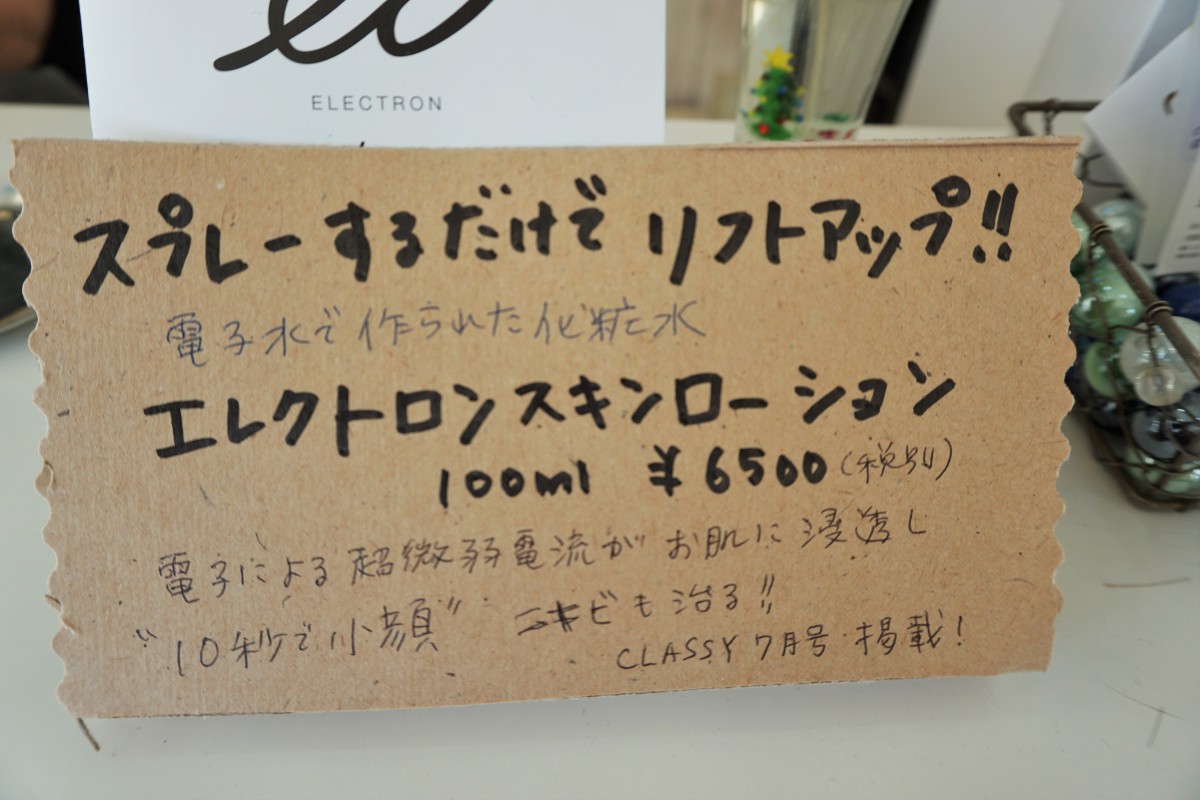 ELECTRON
スプレーするだけでリフトアップ!!
電子水で作られた化粧水
エレクトロンスキンローション
100ml ¥6500(税別)
電子による超微弱電流がお肌に浸透し
"10秒で小顔" ニキビも治る!!
CLASSY 7月号 掲載!